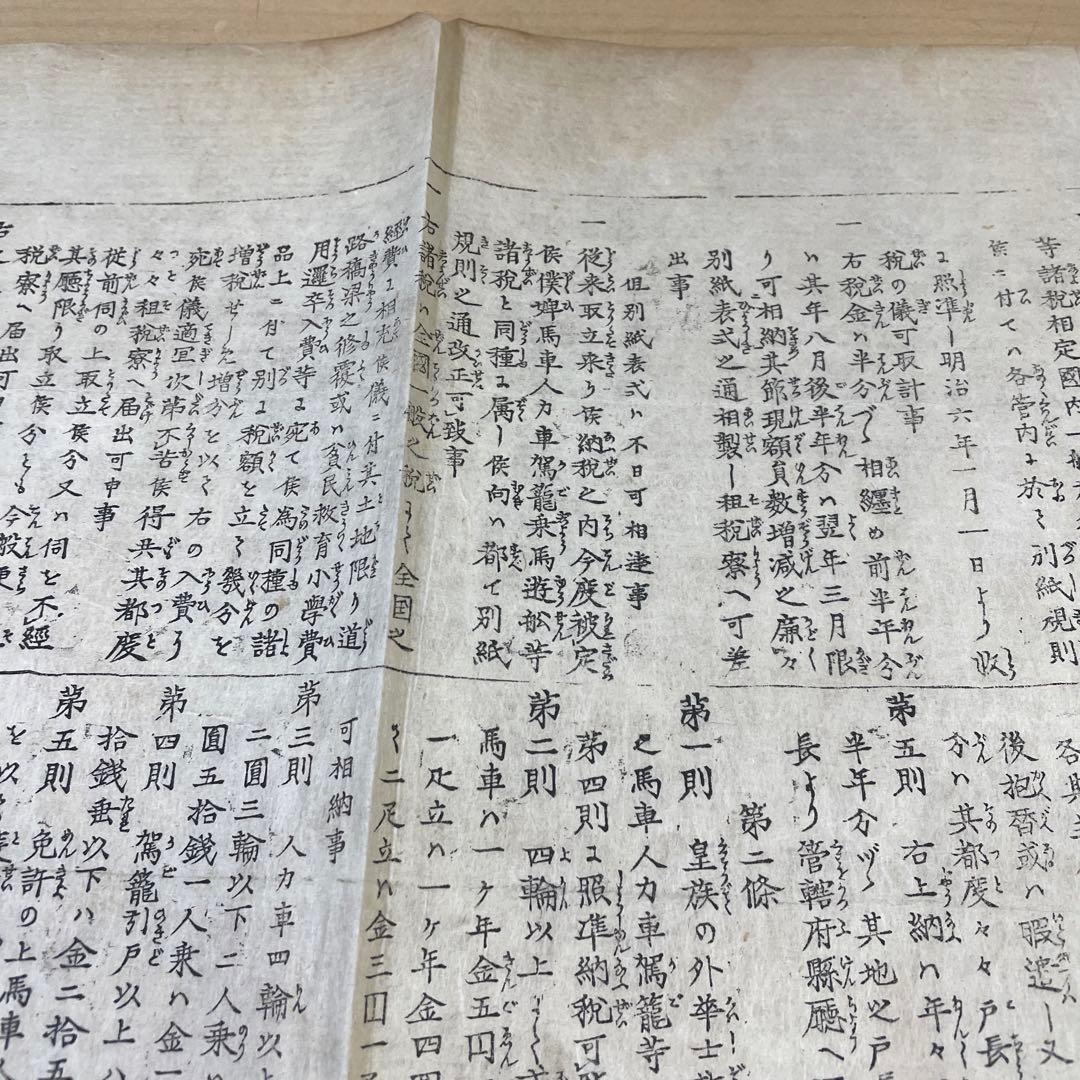 等諸税相定國内一般
付てハ各管内に於て別紙規則
に照準し明治六年一月一日より収
税の儀可取計事
一
右税金ハ半分づゝ相纏め前半年分
ハ其年八月後半年分ハ翌年三月限
り可相納其節現額員数増減之廉々
別紙表式之通相製し租税寮へ可差
出事
但別紙表式ハ不日可相達事
一
従来取立来り候納税之内今度被定
候僕婢馬車人力車駕籠乗馬遊舩等
諸税と同種に属し候向ハ都て別紙
規則之通改正可致事
一
右諸税ハ全國一般之税にて全国之
經費に相充候儀ニ付其土地限り道
路橋梁之修覆或ハ貧民救育小學費
用邏卒入費等に宛て候為同種の諸
品上ニ於て別に税額を立て幾分を
増税せしん増分を以て右の入費に
宛候儀適宜次第不苦候得共其都度
々々租税寮へ届出可申事
従前伺の上取立候分又ハ伺を不經
其廳限り取立候分とも今般更
税寮へ届出可
各
後抱替或ハ暇遣し又
分ハ其都度々々戸長
第五則 右上納ハ年々
半年分づゝ其地之戸
長より管轄府縣廳へ
第二條
第一則 皇族の外華士
之馬車人力車駕籠等
第四則に照凖納税可
第二則 四輪以上にて
馬車ハ一ヶ年金五円
一疋立ハ一ヶ年金四
て二疋立ハ金三円
可相納事
第三則 人力車四輪以
二圓三輪以下二人乗
圓五拾銭一人乗ハ金一
第四則 駕籠引戸以上ハ
拾銭垂以下ハ金二拾五
第五則 免許の上馬車
を以